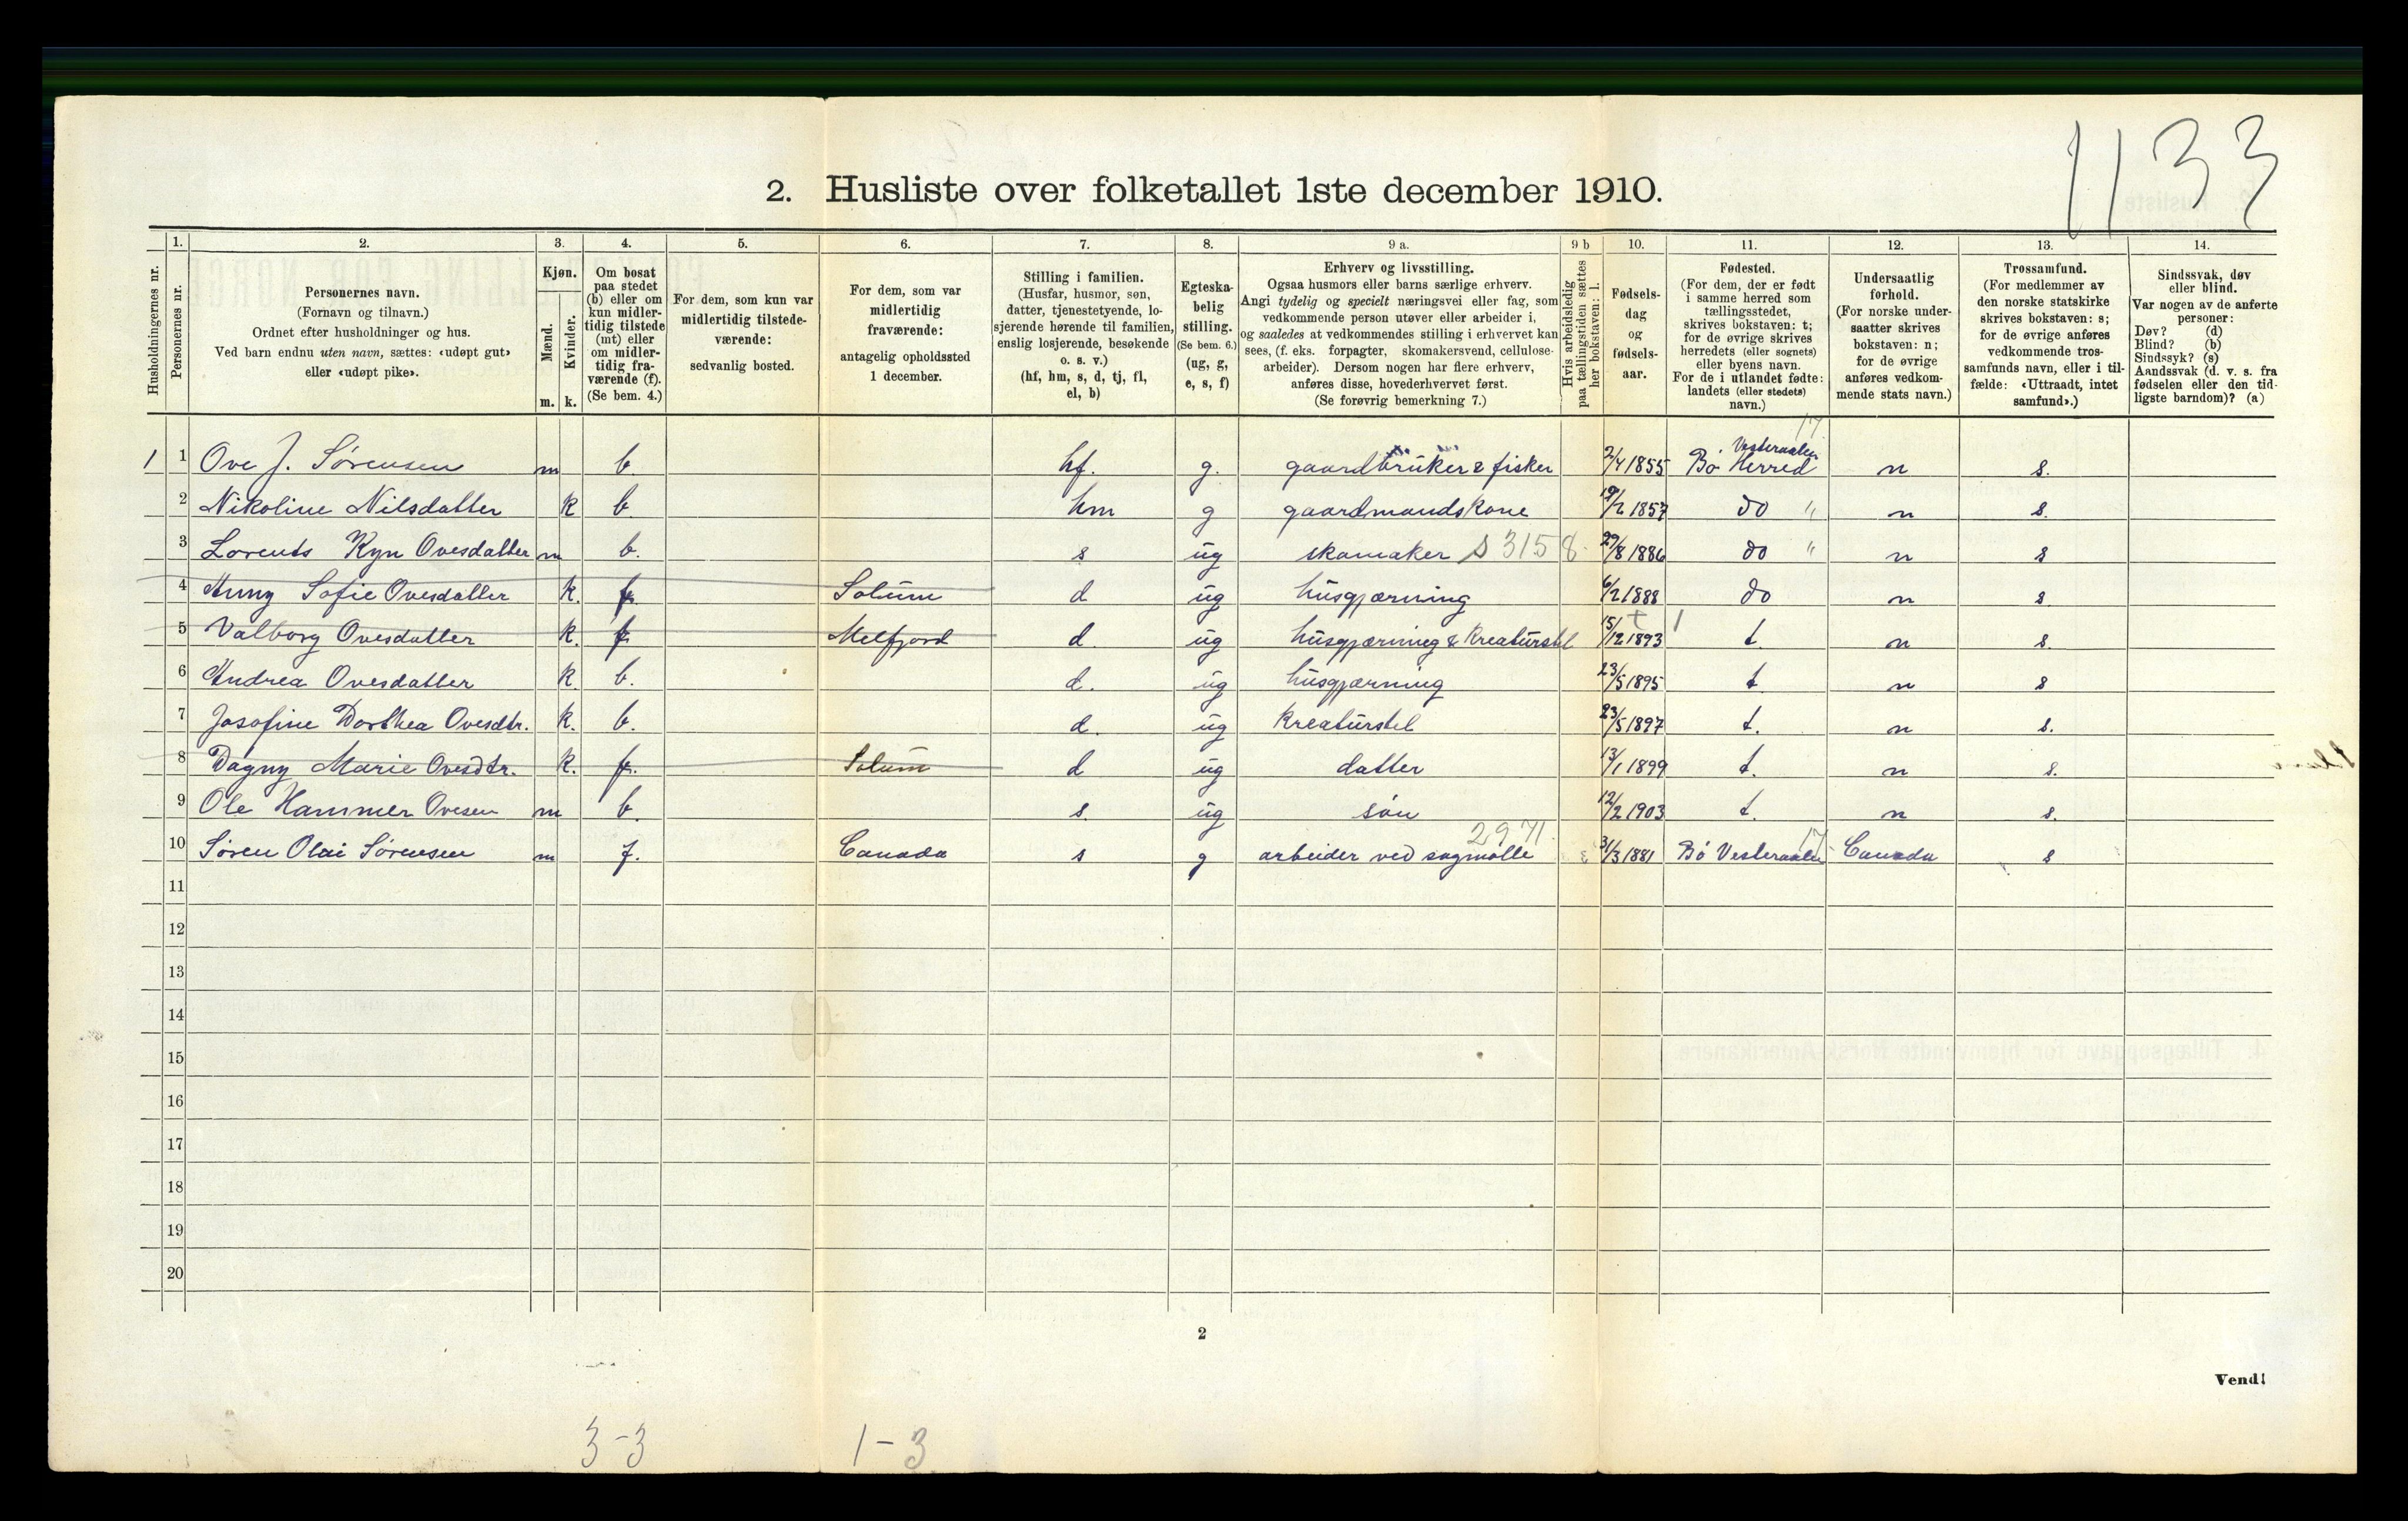 1133
2. Husliste over folketallet 1ste december 1910.
Husholdningernes nr.
1. Personernes nr.
2. Personernes navn.
(Fornavn og tilnavn.)
Ordnet efter husholdninger og hus.
Ved barn endnu uten navn, sættes: «udøpt gut»
eller «udøpt pike».
3. Kjøn.
Mænd. m.
Kvinder. k.
4. Om bosat
paa stedet
(b) eller om
kun midler-
tidig tilstede
(mt) eller
om midler-
tidig fra-
værende (f).
(Se bem. 4.)
5. For dem, som kun var
midlertidig tilstede-
værende:
sedvanlig bosted.
6. For dem, som var
midlertidig
fraværende:
antagelig opholdssted
1 december.
7. Stilling i familien.
(Husfar, husmor, søn,
datter, tjenestetyende, lo-
sjerende hørende til familien,
enslig losjerende, besøkende
o. s. v.)
(hf, hm, s, d, tj, fl,
el, b)
8. Egteska-
belig
stilling.
(Se bem. 6.)
(ug, g,
e, s, f)
9 a. Erhverv og livsstilling.
Ogsaa husmors eller barns særlige erhverv.
Angi tydelig og specielt næringsvei eller fag, som
vedkommende person utøver eller arbeider i,
og saaledes at vedkommendes stilling i erhvervet kan
sees, (f. eks. forpagter, skomakersvend, cellulose-
arbeider). Dersom nogen har flere erhverv,
anføres disse, hovederhvervet først.
(Se forøvrig bemerkning 7.)
9 b Hvis arbeidsledig
paa tællingstiden sættes
her bokstaven: l.
10. Fødsels-
dag
og
fødsels-
aar.
11. Fødested.
(For dem, der er født
i samme herred som
tællingsstedet,
skrives bokstaven: t;
for de øvrige skrives
herredets (eller sognets)
eller byens navn.
For de i utlandet fødte:
landets (eller stedets)
navn.)
12. Undersaatlig
forhold.
(For norske under-
saatter skrives
bokstaven: n;
for de øvrige
anføres vedkom-
mende stats navn.)
13. Trossamfund.
(For medlemmer av
den norske statskirke
skrives bokstaven: s;
for de øvrige anføres
vedkommende tros-
samfunds navn, eller i til-
fælde: «Uttraadt, intet
samfund».)
14. Sindssvak, døv
eller blind.
Var nogen av de anførte
personer:
Døv? (d)
Blind? (b)
Sindssyk? (s)
Aandssvak (d. v. s. fra
fødselen eller den tid-
ligste barndom)? (a)
17
1 1 Ove J. Sørensen m b. hf. g. gaardbruker & fisker 2/4 1855 Bø Herred Vesteraalen n s.
2 Nikoline Nilsdatter k b. hm g gaardmandskone 19/2 1857 do " n s.
3 Lorents Kyn Ovesdatter m b. s ug skomaker S 3158 29/8 1886 do " n s
4 Anny Sofie Ovesdatter k. f. Solum d ug husgjærning 6/2 1888 do n s.
5 Valborg Ovesdatter k. f. Melfjord d. ug husgjærning & kreaturstel 15/12 1893 t. n s.
6 Andrea Ovesdatter k. b. d. ug husgjærning 23/5 1895 t. n s
7 Josofine Dorthea Ovesdtr. k. b. d. ug kreaturstel 23/5 1897 t. n s.
8 Dagny Marie Ovesdtr. k. f. Solum d ug datter 13/1 1899 t. n s.
9 Ole Hammer Ovesen m b. s. ug søn 12/2 1903 t. n s.
2971. 17
10 Søren Olai Sørensen m f. Canada s g arbeider ved sagmølle 31/3 1881 Bø Vesteraalen Canada s
11
12
13
14
15
16
17
18
19
20
2
Vend!
3-3 1-3